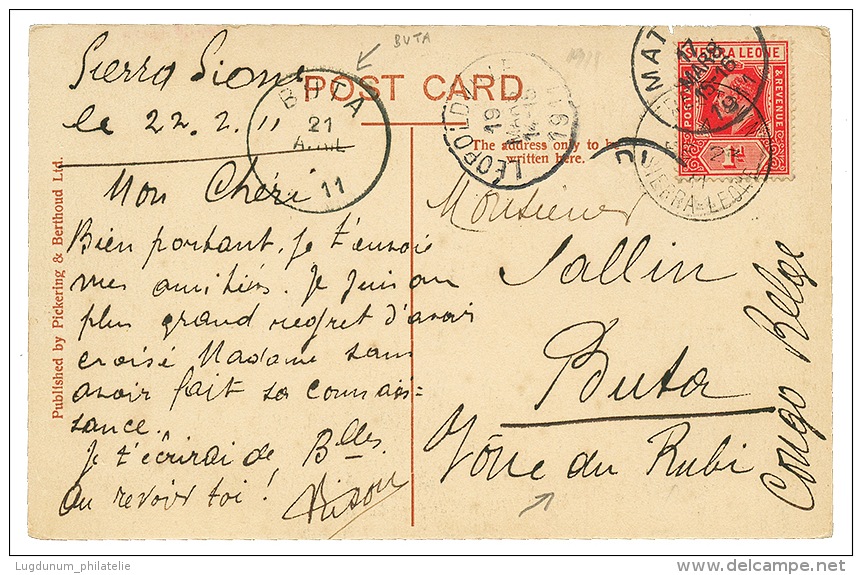 BUTA
1911
Sierra Lione
le 22. 2. 11
POST CARD
BUTA
21
AVRIL
11
LEOPOLDVILLE
19
MARS
14-15
1911
MAT
17
MARS
15-16
1911
SIERRA LEONE
POSTAGE & REVENUE
1D
SIERRA-LEONE
The address only to be
written here.
Mon Chéri
Bien portant, je t'envoie
mes amitiés. Je suis au
plus grand regret d'avoir
croisé Madame sans
avoir fait sa connais=
sance.
Je t'écrirai de Blles
Au revoir toi!
Monsieur
Sallin
Buta
Zône du Rubi
Congo Belge
Published by Pickering & Berthoud Ltd.
Lugdunum_philatelie
delcampe.net